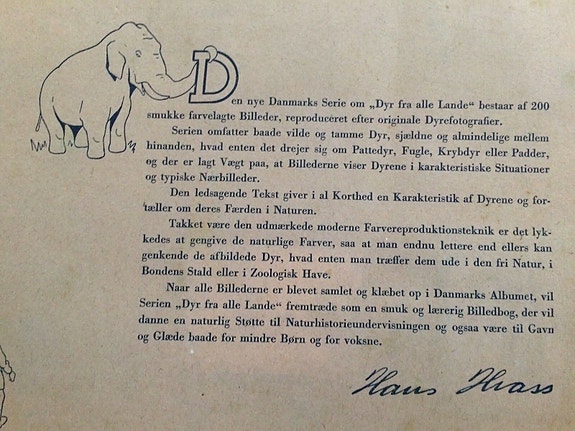 Den nye Danmarks Serie om „Dyr fra alle Lande“ bestaar af 200
smukke farvelagte Billeder, reproduceret efter originale Dyrefotografier.
Serien omfatter baade vilde og tamme Dyr, sjældne og almindelige mellem
hinanden, hvad enten det drejer sig om Pattedyr, Fugle, Krybdyr eller Padder,
og der er lagt Vægt paa, at Billederne viser Dyrene i karakteristiske Situationer
og typiske Nærbilleder.
Den ledsagende Tekst giver i al Korthed en Karakteristik af Dyrene og for-
tæller om deres Færden i Naturen.
Takket være den udmærkede moderne Farvereproduktionsteknik er det lyk-
kedes at gengive de naturlige Farver, saa at man endnu lettere end ellers kan
genkende de afbildede Dyr, hvad enten man træffer dem ude i den fri Natur, i
Bondens Stald eller i Zoologisk Have.
Naar alle Billederne er blevet samlet og klæbet op i Danmarks Albumet, vil
Serien „Dyr fra alle Lande“ fremtræde som en smuk og lærerig Billedbog, der vil
danne en naturlig Støtte til Naturhistorieundervisningen og ogsaa være til Gavn
og Glæde baade for mindre Børn og for voksne.
Hans Hvass